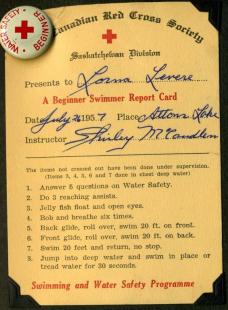 WATER SAFETY BEGINNER
Canadian Red Cross Society
Saskatchewan Division
Presents to Lorna Levere
A Beginner Swimmer Report Card
Date July 26 1957 Place Attons Lake
Instructor Shirley McCandless
The items not crossed out have been done under supervision.
(Items 3, 4, 5, 6 and 7 done in chest deep water)
1. Answer 5 questions on Water Safety.
2. Do 3 reaching assists.
3. Jelly fish float and open eyes.
4. Bob and breathe six times.
5. Back glide, roll over, swim 20 ft. on front.
6. Front glide, roll over, swim 20 ft. on back.
7. Swim 20 feet and return, no stop.
8. Jump into deep water and swim in place or
tread water for 30 seconds.
Swimming and Water Safety Programme